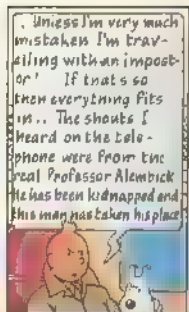 Unless I'm very much
mistaken I'm trav-
elling with an impost-
or! If that's so
then everything fits
in... The shouts I
heard on the tele-
phone were from the
real Professor Alembick
He has been kidnapped and
this man has taken his place